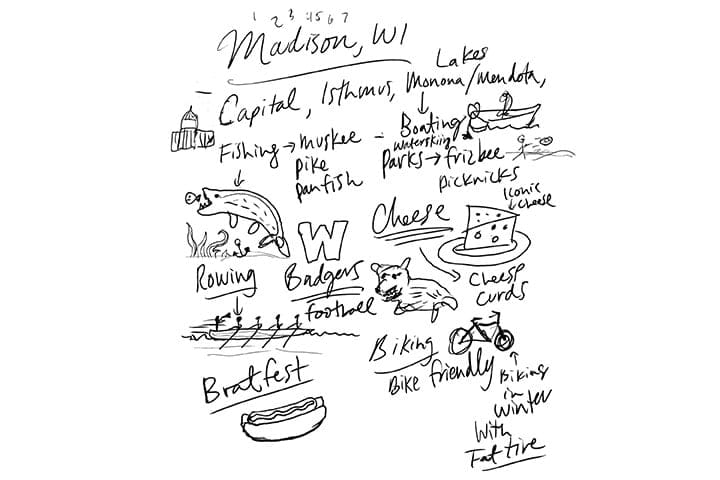 1 2 3 4 5 6 7
Madison, WI
Capital, Isthmus, Lakes
Monona/Mendota,
Fishing → muskee
pike
panfish
Boating
waterskiing
parks → frizbee
picknicks
W
Cheese
Iconic
Cheese
Cheese
curds
Rowing
Badgers
football
Biking
Bike friendly
Biking
in
winter
With
Fat tire
Bratfest